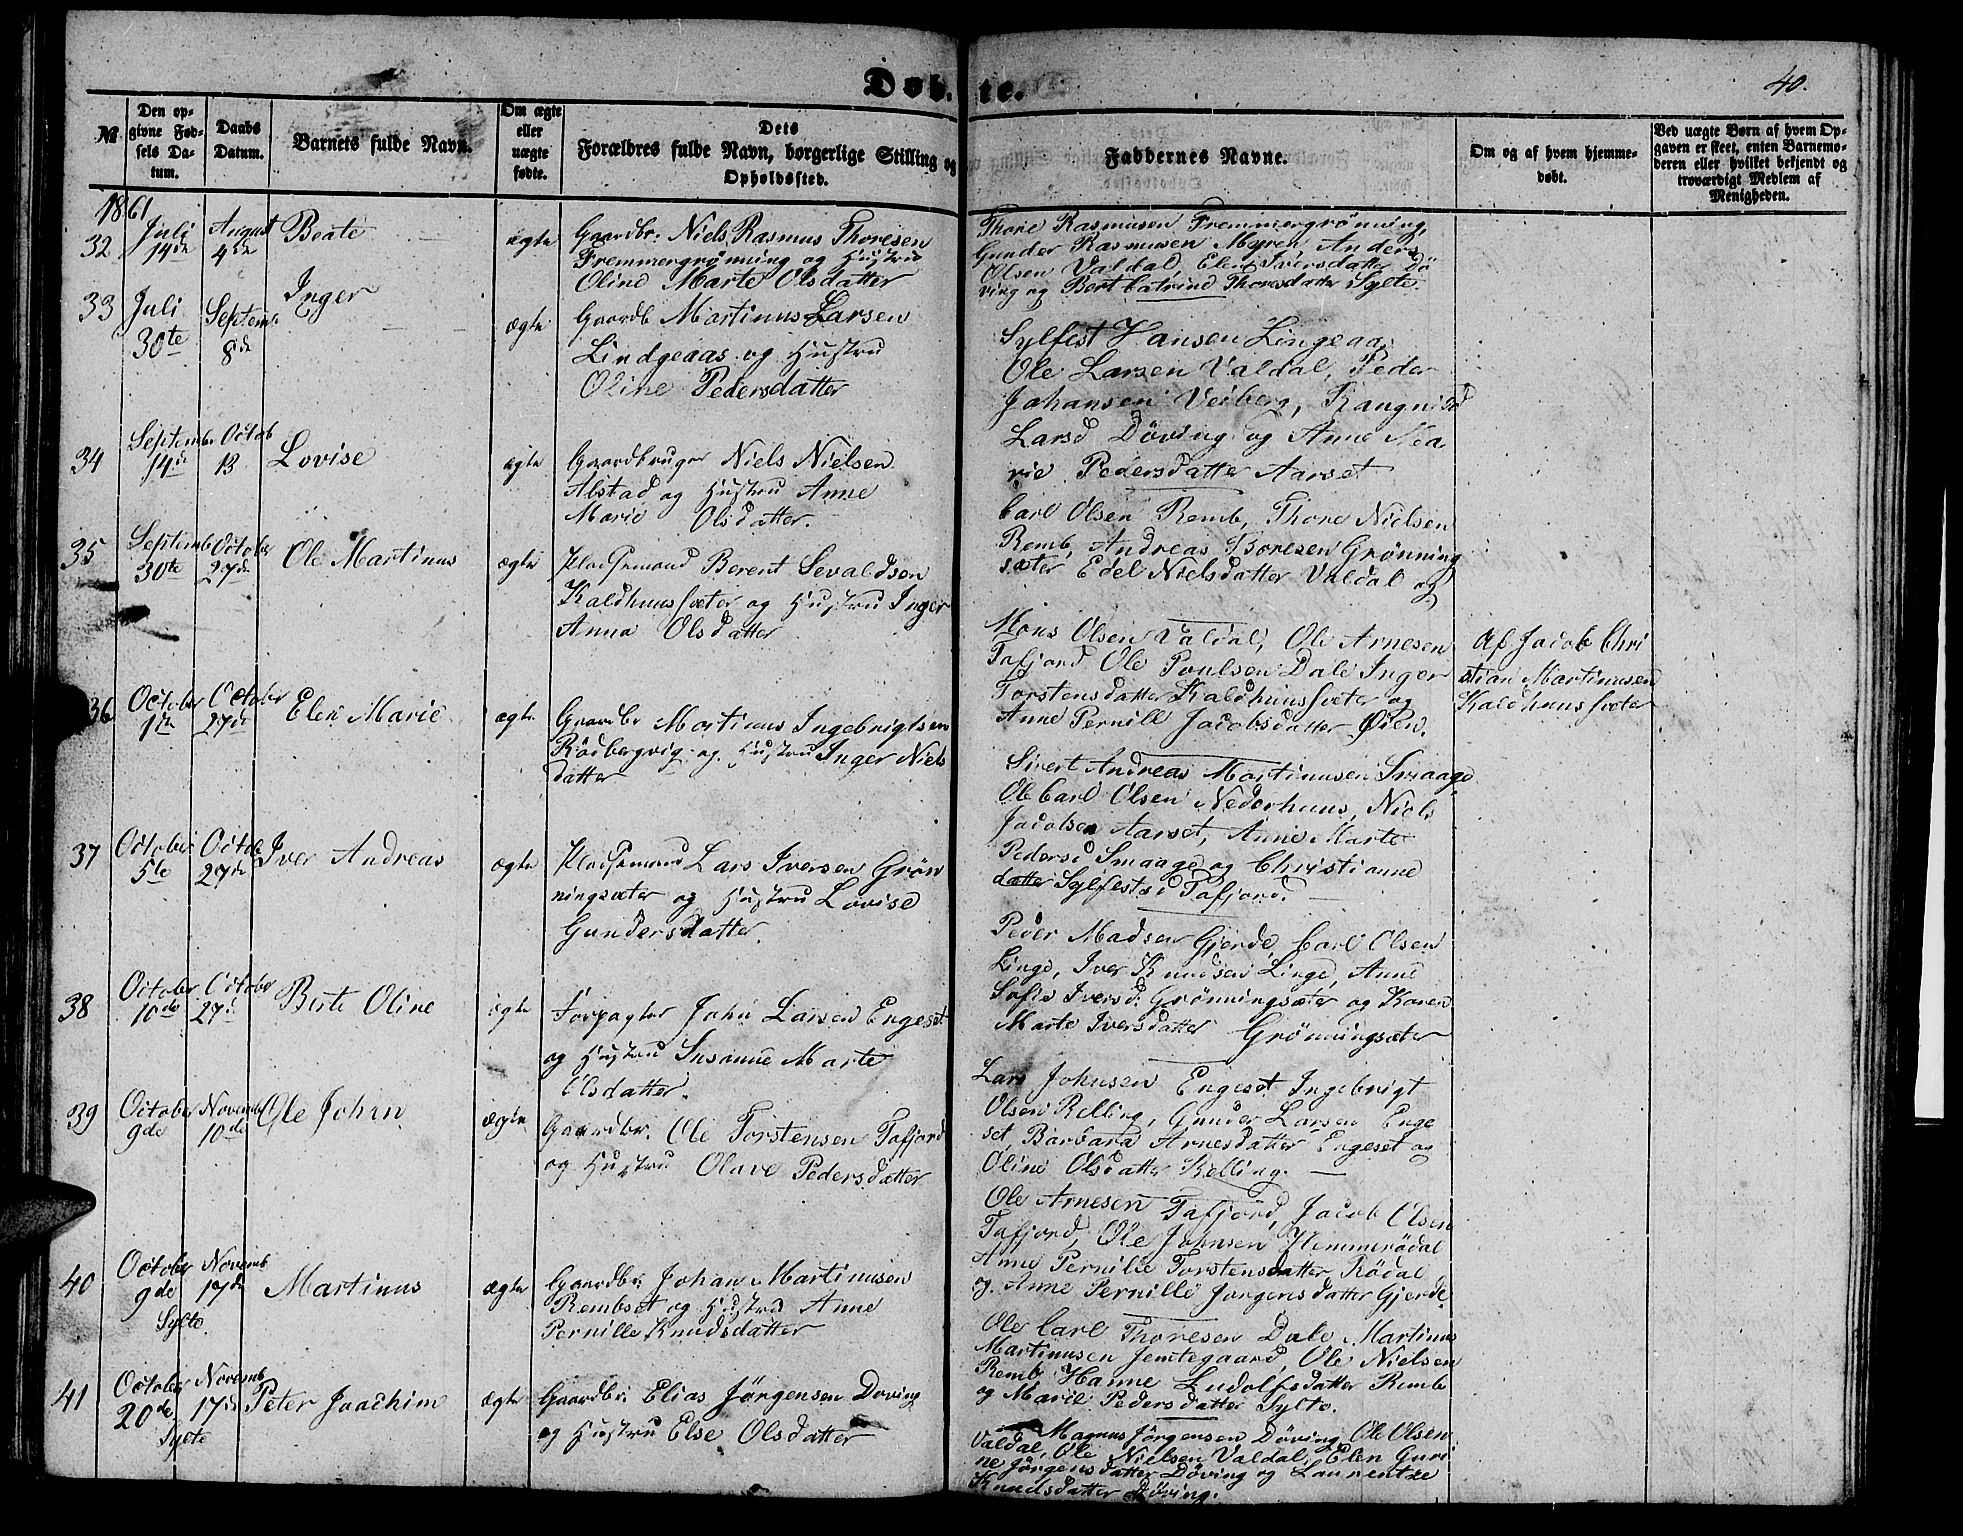 Døb- te.
40.
№
Den opgivne Fødsels Datum.
Daabs Datum.
Barnets fulde Navn.
Om ægte eller uægte fødte.
Dets Forældres fulde Navn, borgerlige Stilling og Opholdssted.
Faddernes Navne.
Om og af hvem hjemmedøbt.
Ved uægte Børn af hvem Opgaven er skeet, enten Barnemoderen eller hvilket bekjendt og troværdigt Medlem af Menigheden.
1861
32
Juli 14de
August 4de
Beate
ægte
Gaardbr: Niels Rasmus Thoresen
Fremmergrønning og Hustru
Oline Marte Olsdatter
Thore Rasmusen Fremmergrønning
Gunder Rasmusen Myren Anders
Olsen Valdal, Elen Iversdatter Dö
ving og Bert Catrine Thoresdatter Sylte
33
Juli 30te
Septemr 8de
Inger
ægte
Gaardb Martinus Larsen
Lindgeaas og Hustru
Oline Pedersdatter
Sylfest Hansen Lingeaas
Ole Larsen Valdal, Peder
Johansen Veiberg, Rangnild
Larsd Döving og Anne Ma
rie Pedersdatter Aarset
34
Septembr 14de
Octob 13
Lovise
ægte
Gaardbruger Niels Nielsen
Alstad og Hustru Anne
Marie Olsdatter.
Carl Olsen Remb, Thore Nielsen
Remb, Andreas Toresen Grønning
sæter Edel Nielsdatter Valdal og
35
Septemb 30te
October 27de
Ole Martinus
ægte
Pladsemand Berent Sevaldsen
Kaldhuussæter og Hustru Inger
Anna Olsdatter
Mons Olsen Valdal, Ole Arnesen
Tafjord Ole Poulsen Dale Inger
Torstensdatter Kaldhuussæter og
Anne Pernille Jacobsdatter Øien.
Af Jacob Chri
stian Martinusen
Kaldhuussæter
36
October 1de
October 27de
Elen Marie
ægte
Gaardbr Martinus Ingebrigtsen
Rödbergvig og Hustru Inger Niels
datter
Sivert Andreas Martinusen Smaage
Ole Carl Olsen Nederhuus, Niels
Jacobsen Aarset, Anne Marte
Pedersd Smaage og Christianne
datter Sylfestsd Tafjord.
37
October 5te
Octob 27de
Iver Andreas
ægte
Pladsemand Lars Iversen Grøn
ningsæter og Hustru Lovise
Gundersdatter.
Peder Madsen Gjerde, Carl Olsen
Linge, Iver Knudsen Linge, Anne
Sofie Iversd: Grønningsæter og Karen
Marte Iversdatter Grönningsæter
38
October 10de
October 27de
Bate Oline
ægte
Forpagter John Larsen Engeset
og Hustru Susanne Marte
Olsdatter.
Lars Johnsen Engeset Ingebrigt
Olsen Relling, Gunder Larsen Enge
set, Barbara Arnesdatter Engeset og
Oline Olsdatter Relling.
39
October 9de
Novemb 10de
Ole John
ægte
Gaardbr. Ole Torstensen Tafjord
og Hustru Olave Pedersdatter
Ole Arnesen Tafjord, Jacob Olsen
Tafjord, Ole Johnsen Hemmerödal
Anne Pernille Torstensdatter Rödal
og Anne Pernille Jørgensdatter Gjerde
40
October 9de
Novemb 17de
Sylte.
Martinus
ægte
Gaardbr: Johan Martinusen
Rembset og Hustru Anne
Pernille Knudsdatter
Ole Carl Thoresen Dale Martinus
Martinusen Jemtegaard, Ole Nielsen
Remb Hanne Ludolfsdatter Remb
og Marie Pedersdatter Sylte.
41
October 20de
Novemb 17de
Sylte
Peter Joachim
ægte
Gaardbr: Elias Jörgensen Döving
og Hustru Else Olsdatter
Magnus Jörgensen Döving, Ole Olsen
Valdal, Ole Nielsen Valdal, Elen Guri
ne Jörgensdatter Döving og Laurentze
Knudsdatter Döving.